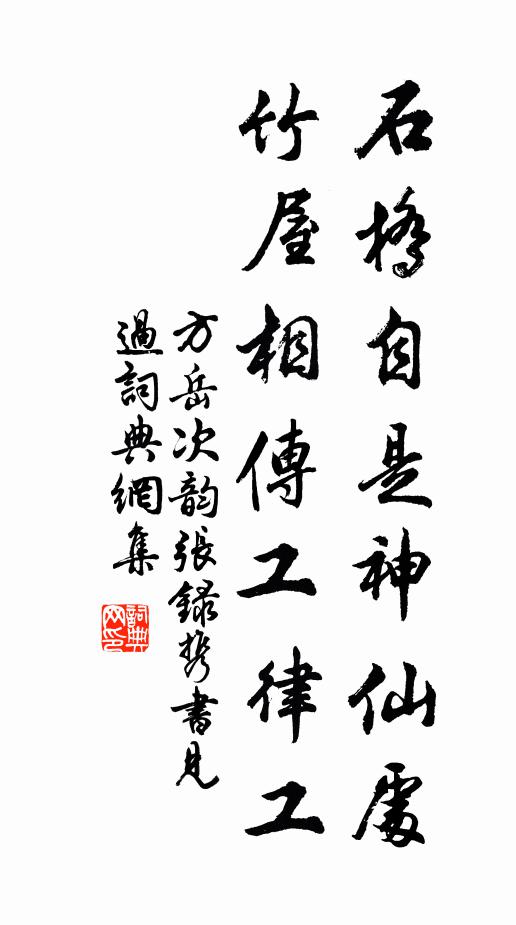 石橋自是神仙處
竹屋相傳工律工
方岳次韵張録携書見
過詞典網集
詞典
网印